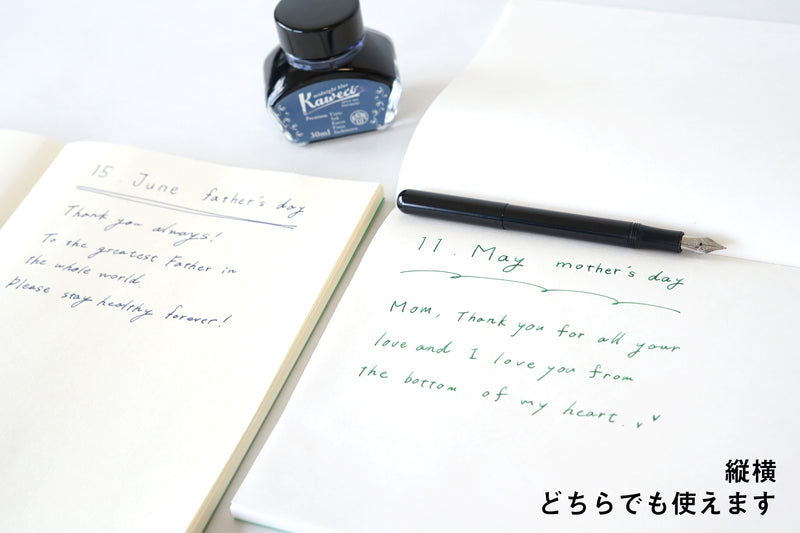 midnight blue
Kaweco
Premium Tinte
Ink
30ml
15. June father's day
Thank you always!
To the greatest Father in
the whole world
please stay healthy forever!
11. May mother's day
Mom, Thank you for all your
love and I love you from
the bottom of my heart.
縦横
どちらでも使えます